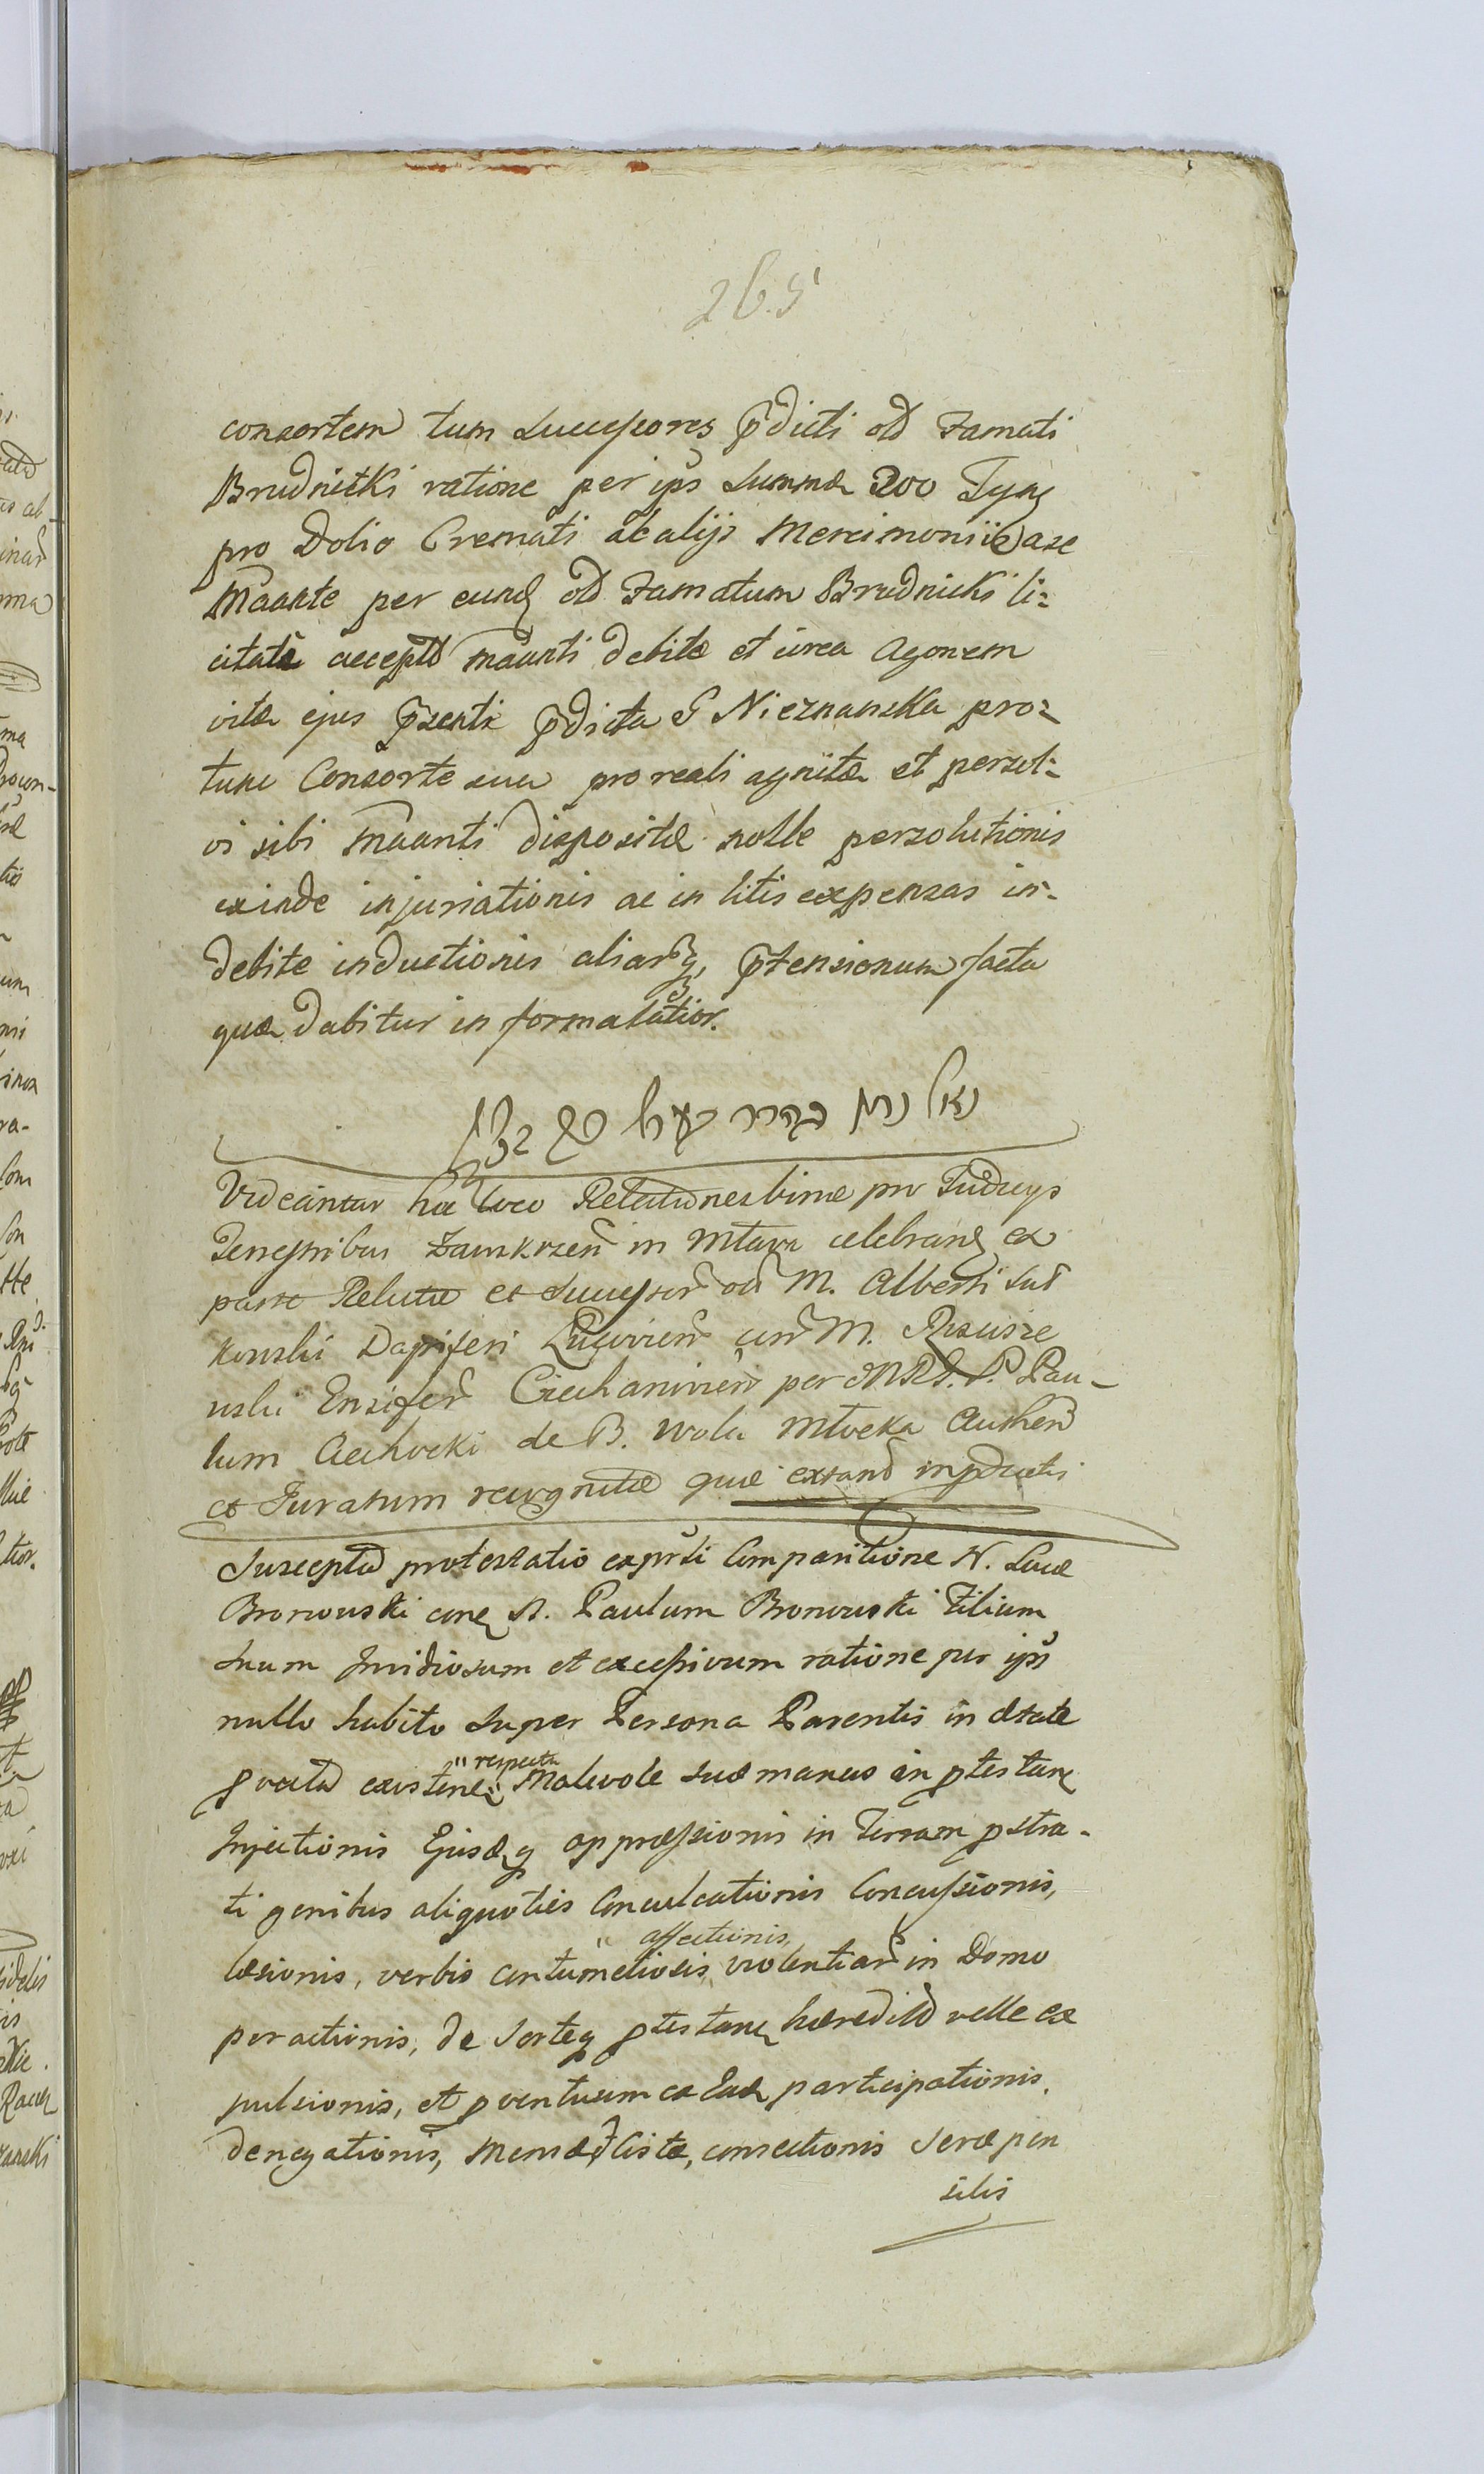 265
consortem tum Successores p̃dicti olĩ Famati
Brudnicki ratione per ips̃ Summæ 200 Tyn̨
pro Dolio Cremati ac alijs Mercimoniis ase
Maante per eund̨ olĩ Famatum Brudnicki li=
citatè accepto maanti debitæ et circa Agonem
vitæ ejus p̃senti p̃dicta G Nieznanska pro=
tunc Consorte sua pro reali agnitæ et persol=
vi sibi maanti dispositæ nolle persolutionis
exinde injuriationis ac in litis expensas in=
debite inductionis aliarq̃, p̃tensionum facta
quæ dabitur in forma latior.
Videantur hoc loco Relationes binæ pro Judicijs
Terrestribus Zawkrzen̄ in Mlava celebran̨ ex
parte Relictæ et Successor̄ olĩ M. Alberti Sul
kowski Dapiferi con̄ M.
uski Ensifer̄ Ciechanovien̄ per P. Pau-
lum Ciechocki de B. Wola Mlocka Authen̄
et Juratum recognitæ quæ extant inp̃ductis
Suscepta protestatio ex p̃sti Comparitione N. Lucæ
Bronowski con̨ N. Paulum Bronowski Filium
Suum Invidiosum et excessivum ratione per ips̃
nullo habito Super Persona Parentis in ætate
p̱vecta existen̨ "respectu" Malevole suæ manus in p̱testan̨
Injectionis Ejusd̨q̨ oppræssionis in Terram p̱stra-
ti genibus aliquoties Conculcationis Concussionis,
læsionis, verbis contumeliosis "affectionis, violentiar̄ in Domo
peractionis, de Sorteq̨ p̱testan̨ hæredita velle ex
pulsionis, et p̱ventuum ex Ead̨ participationis,
denegationis, consectionis Seræ pen
silis